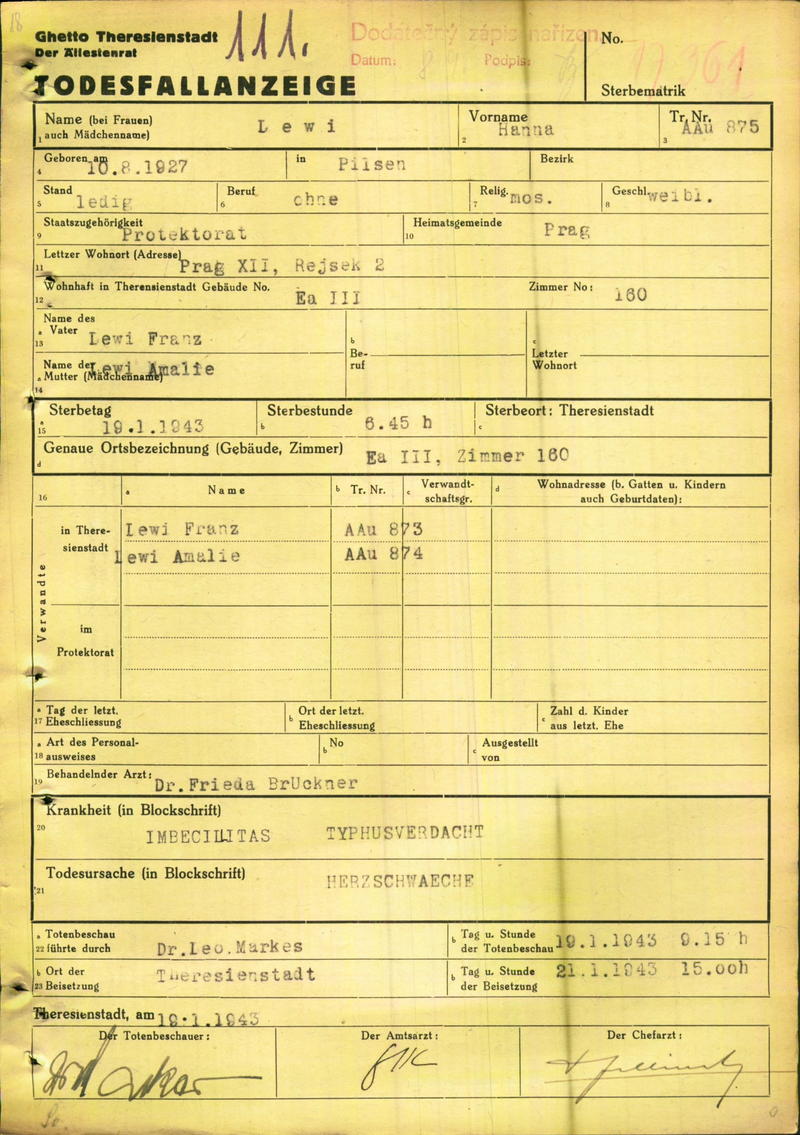 18
Ghetto Theresienstadt
Der Ältestenrat
111.
Dodatečný zápis nařízen.
Datum:
Podpis:
No.
17361
Sterbematrik
TODESFALLANZEIGE
Name (bei Frauen)
1 auch Mädchenname)
Lewi
Vorname
2
Hanna
Tr. Nr.
3
AAu 875
4 Geboren am
10.8.1927
in
Pilsen
Bezirk
Stand
5
ledig
Beruf
6
ohne
Relig.
7
mos.
Geschl.
8
weibl.
Staatszugehörigkeit
9
Protektorat
Heimatsgemeinde
10
Prag
Lettzer Wohnort (Adresse)
11
Prag XII, Rejsek 2
Wohnhaft in Therensienstadt Gebäude No.
12
Ea III
Zimmer No:
160
Name des
a Vater
13
Lewi Franz
b
Be-
ruf
c
Letzter
Wohnort
Name der
a Mutter (Mädchenname)
14
Lewi Amalie
Sterbetag
a
15
19.1.1943
Sterbestunde
b
6.45 h
Sterbeort: Theresienstadt
c
Genaue Ortsbezeichnung (Gebäude, Zimmer)
d
Ea III, Zimmer 160
16
a Name
b Tr. Nr.
c Verwandt-
schaftsgr.
d Wohnadresse (b. Gatten u. Kindern
auch Geburtdaten):
Verwandte
in There-
sienstadt
Lewi Franz AAu 873
Lewi Amalie AAu 874
im
Protektorat
a Tag der letzt.
17 Eheschliessung
b Ort der letzt.
Eheschliessung
c Zahl d. Kinder
aus letzt. Ehe
a Art des Personal-
18 ausweises
b No
c Ausgestellt
von
19 Behandelnder Arzt:
Dr.Frieda BrUckner
Krankheit (in Blockschrift)
20
IMBECILLITAS TYPHUSVERDACHT
Todesursache (in Blockschrift)
21
HERZSCHWAECHE
a Totenbeschau
22 führte durch
Dr.Leo.Markes
b Tag u. Stunde
der Totenbeschau
19.1.1943 9.15 h
b Ort der
23 Beisetzung
Theresienstadt
b Tag u. Stunde
der Beisetzung
21.1.1943 15.00h
Theresienstadt, am
19.1.1943
Der Totenbeschauer:
Der Amtsarzt:
Der Chefarzt: